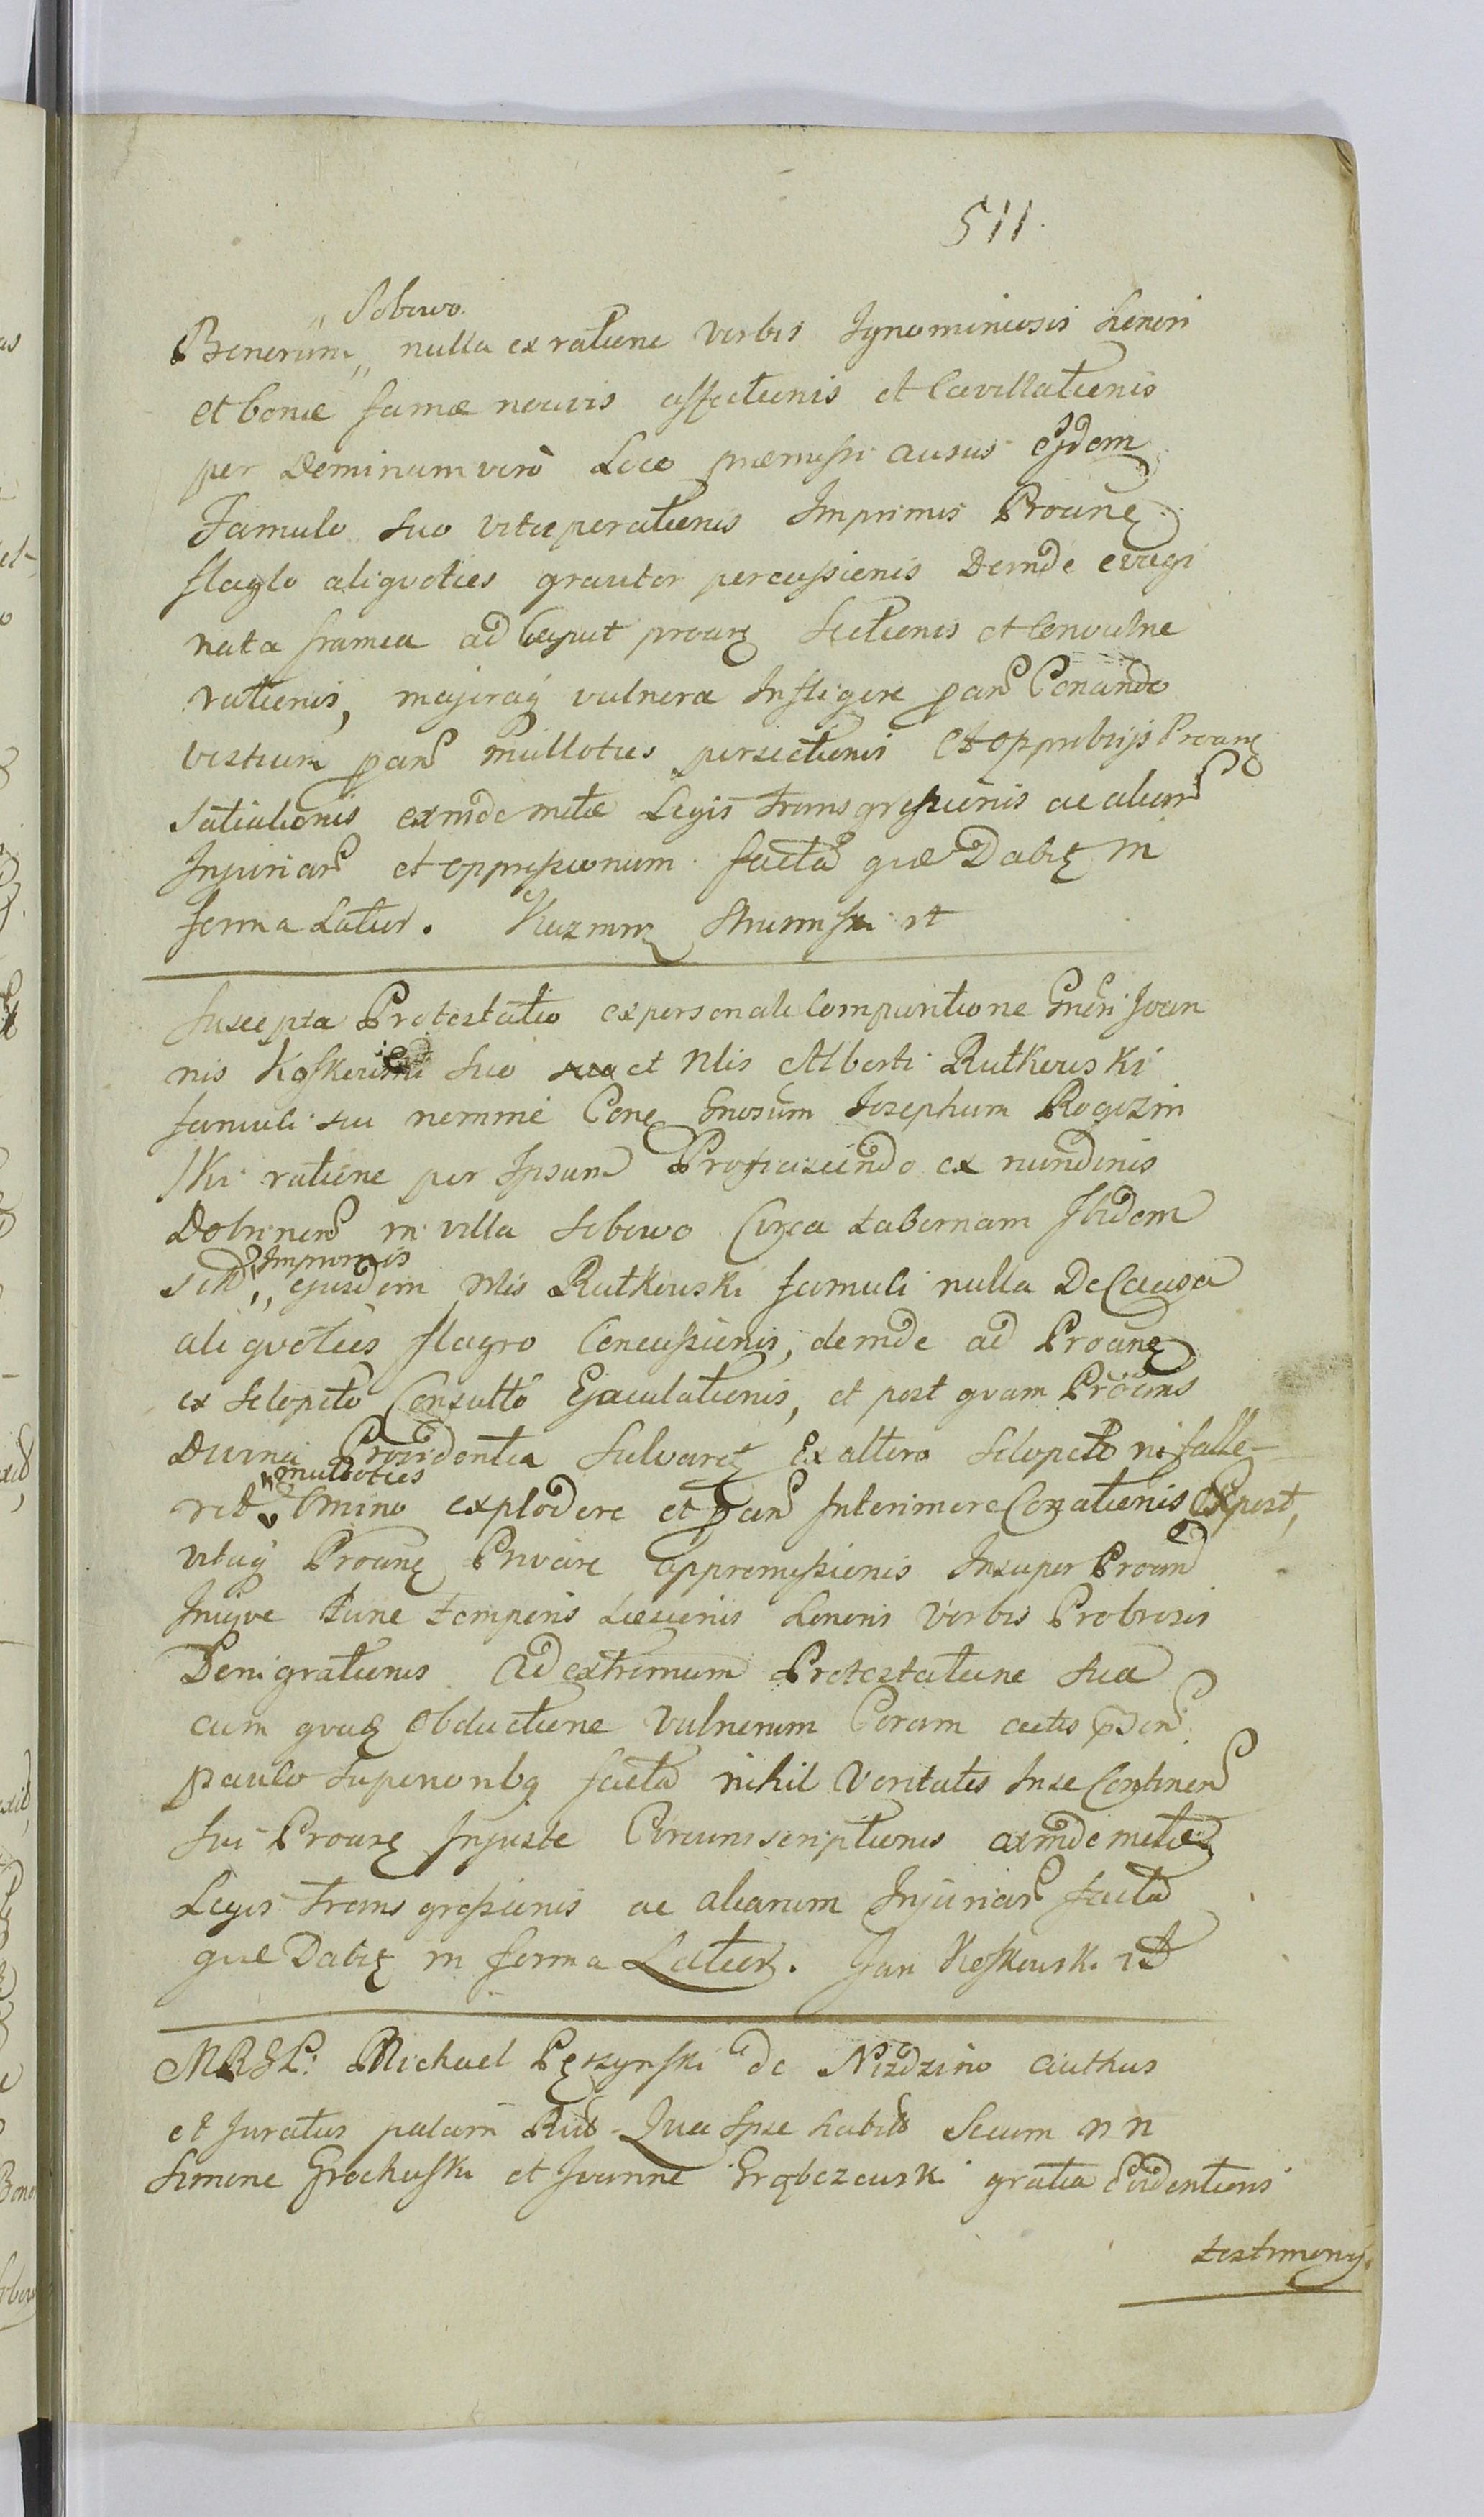 511.
Sobowo.
Bonorum nulla ex ratione verbis Ignominiosis honori
et bonæ famæ nocivis affectionis et Cavillationis
per Dominum vero Loco præmissi ausus ejdem
Famulo suo vituperationis Imprimis Proane
flaglo aliqvoties graviter percussionis Deinde evagi
nata framea ad Caput proane Sectionis et Convulne
rationis, majoraq vulnera Infligere pan Conando
vestium pan multoties persectionis et opprobrijs Proane
satiationis exinde metæ Legis transgressionis ac aliar
Injuriar et oppressionum facta quæ Dabit in
forma Latior. Kazmirz rt
Suscepta Protestatio ex personali Comparitione Gnosi Joan
nis Koskowski suo et Nlis Alberti Rutkowski
famuli sui nomine Cone Gnosum Josephum Rogozin
ski ratione per Ipsum Proficiscendo ex nundinis
Dobrinen in villa Sobowo Circa tabernam Ibidem
sitt Imprimis ejusdem Nlis Rutkowski famuli nulla De Causa
aliqvoties flagro Concussionis, deinde ad Proane
ex sclopeto Consulto Ejaculationis, et post qvam Proans
Divina Providentia Salvaret Ex altero Sclopeto ni falle-
ret multoties Omino explodere et pan Interimere Conationis Expost,
vitaq Proane Privare appromissionis Insuper Proan
Iniqve tunc temporis Læsionis Honoris Verbis Probrosis
Denigrationis Ad extremum Protestatione sua
cum qvaq Obductione Vulnerum Coram actis pden
paulo superiorbq facta nihil Veritatis In se Continen
sui Proane Injuste Circumscriptionis exinde metæ
Legis transgressionis ac aliarum Injuriar facta
quæ Dabit in forma Latior. Jan Koskowski rt
Michael de Nizdzino authus
et Juratus palam Qua Ipse habitt Secum nn
Simone Grochuski et Joanne Grąbczewski gratia Evidentioris
testimonij